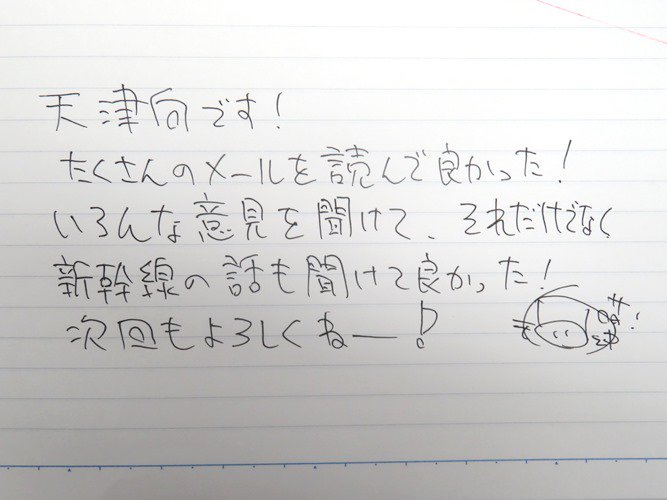 天津向です!
たくさんのメールを読んで良かった!
いろんな意見を聞けて、それだけでなく
新幹線の話も聞けて良かった!
次回もよろしくねー!